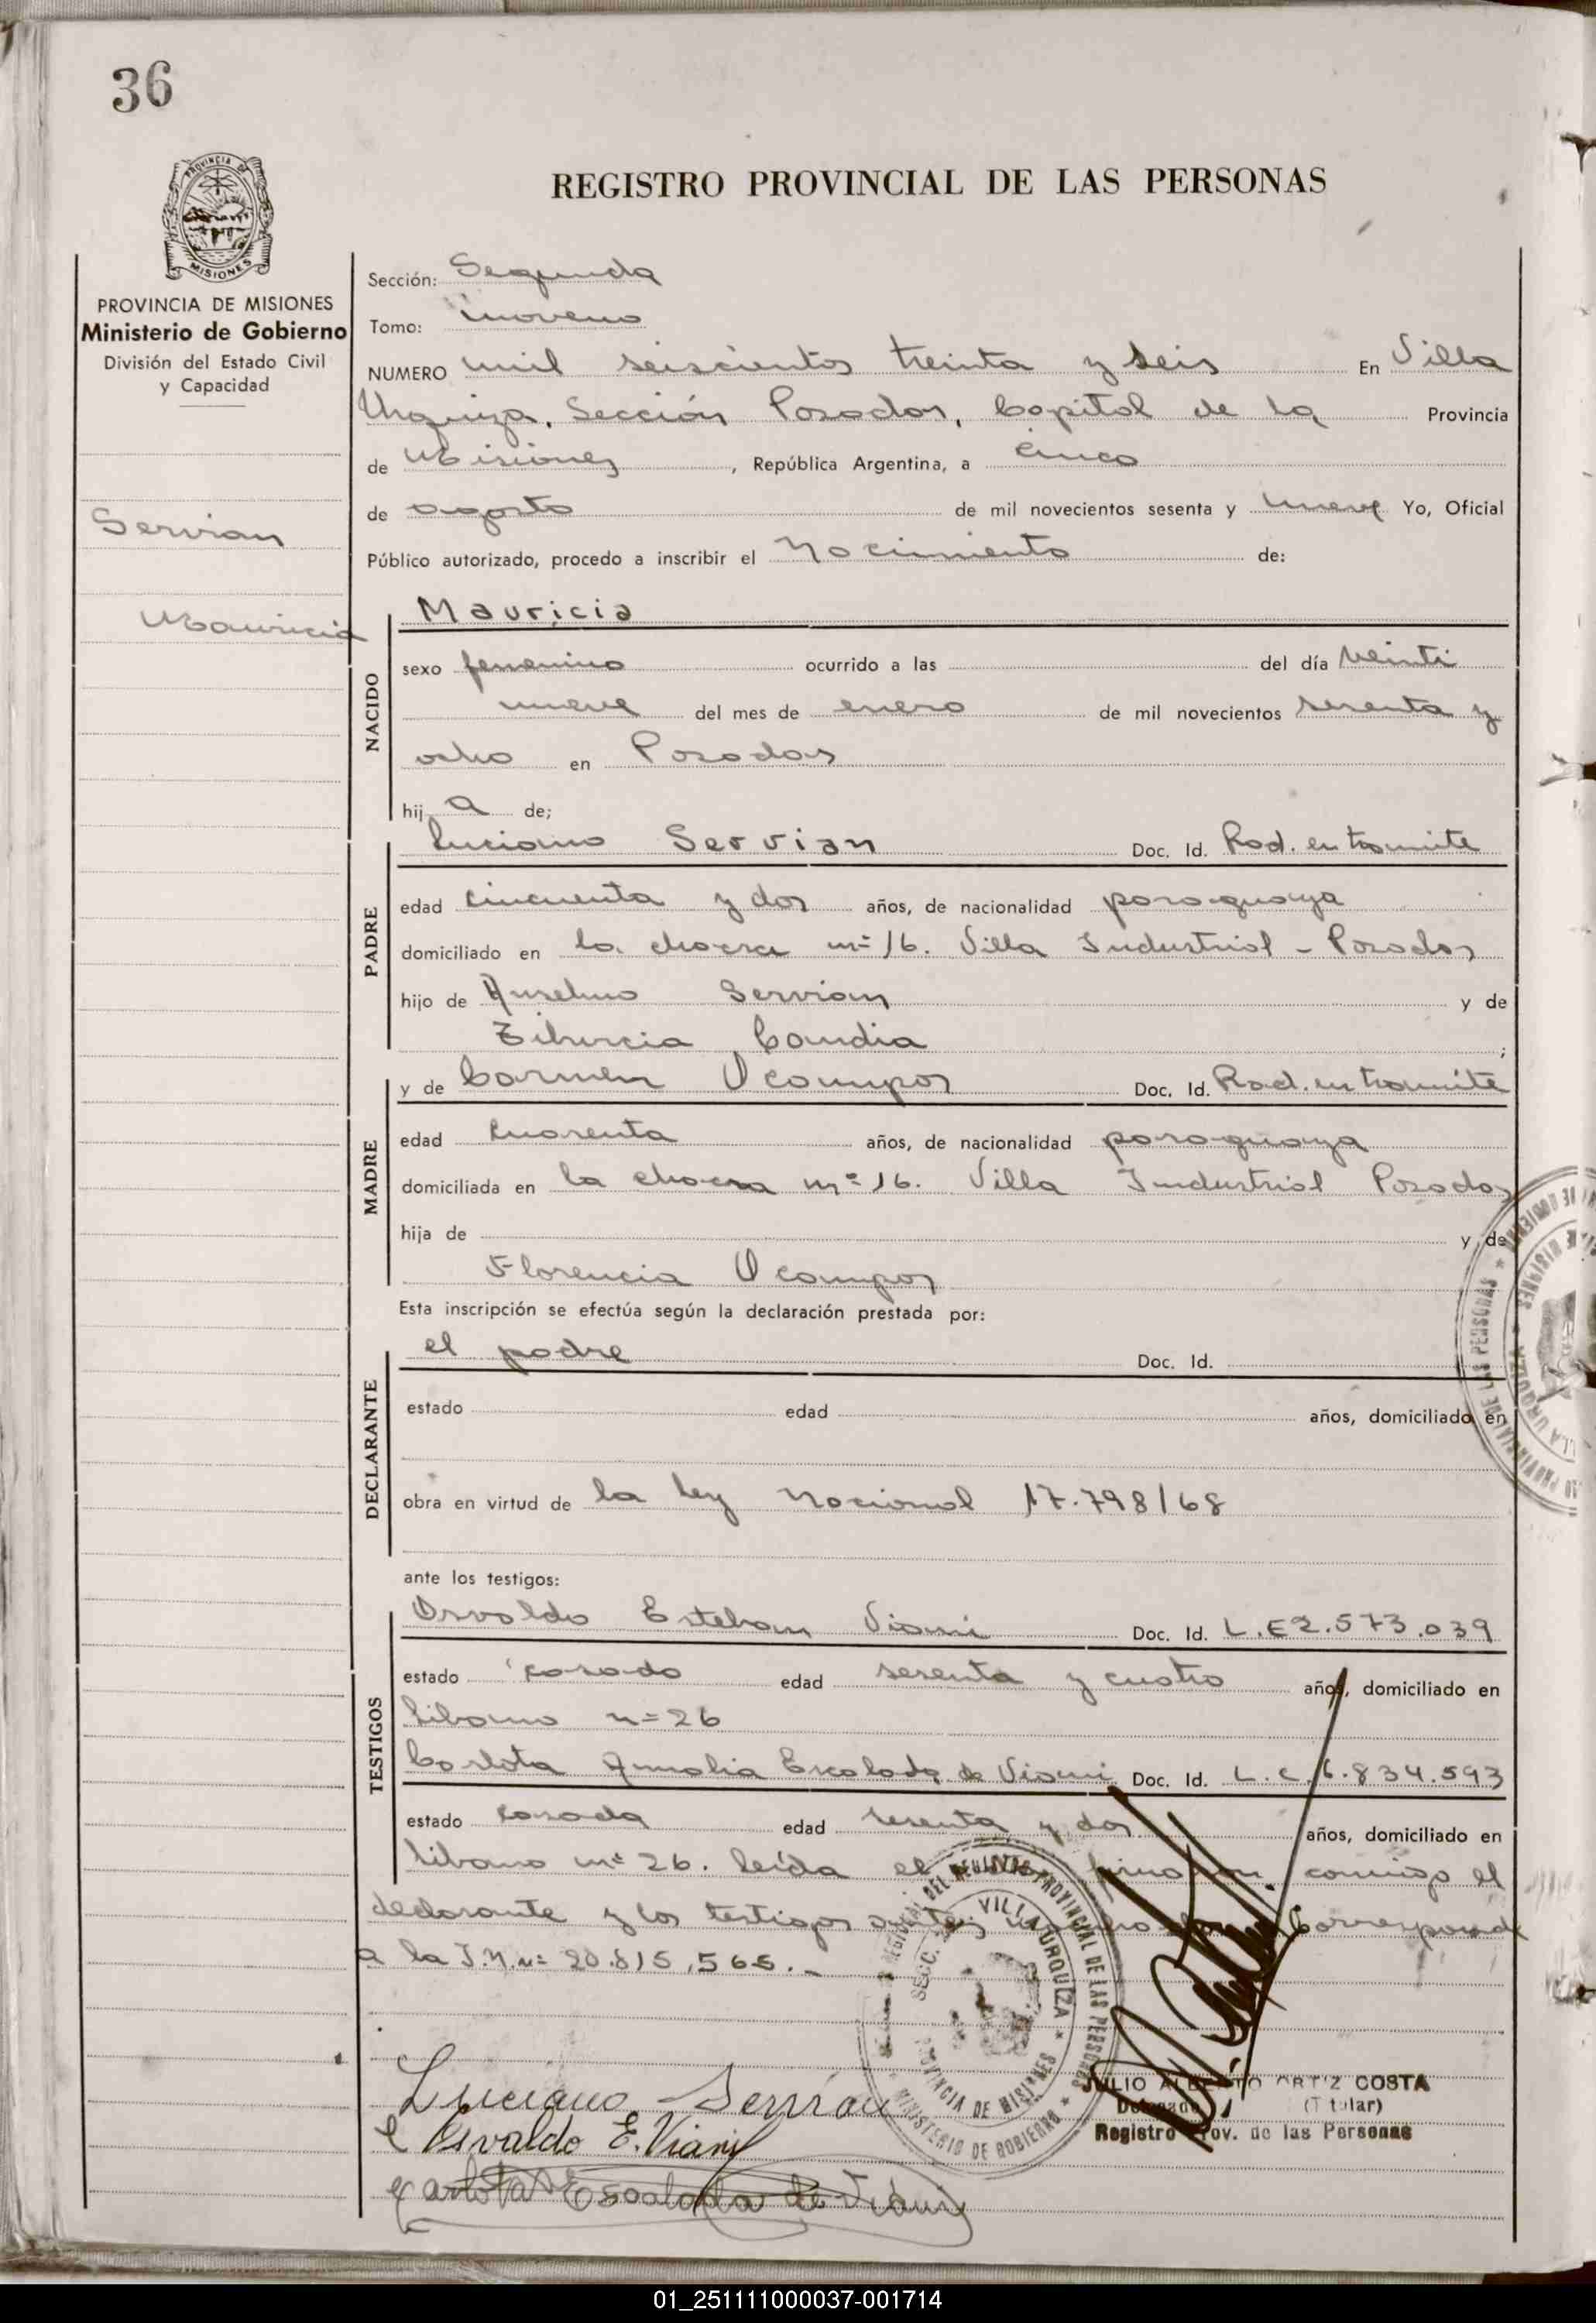 36
PROVINCIA DE
MISIONES
REGISTRO PROVINCIAL DE LAS PERSONAS
PROVINCIA DE MISIONES
Ministerio de Gobierno
División del Estado Civil
y Capacidad
Servian
Mauricia
Sección: Segunda
Tomo: noveno
NUMERO mil seiscientos treinta y seis En Villa
Urquiza, Sección Posadas, Capital de la Provincia
de Misiones, República Argentina, a cinco
de agosto de mil novecientos sesenta y nueve Yo, Oficial
Público autorizado, procedo a inscribir el Nacimiento de:
NACIDO
Mauricia
sexo femenino ocurrido a las del día veinti
nueve del mes de enero de mil novecientos sesenta y
ocho en Posadas
hij a de;
PADRE
Luciano Servian Doc. Id. Rad. en tramite
edad cincuenta y dos años, de nacionalidad paraguaya
domiciliado en la chacra nº 16. Villa Industrial - Posadas
hijo de Anselmo Servian y de
Tiburcia Candia ;
MADRE
y de Carmen Ocampos Doc. Id. Rad. en tramite
edad cuarenta años, de nacionalidad paraguaya
domiciliada en la chacra nº 16. Villa Industrial Posadas
hija de y de
Florencia Ocampos
Esta inscripción se efectúa según la declaración prestada por:
DECLARANTE
el padre Doc. Id.
estado edad años, domiciliado en
obra en virtud de la ley Nacional 17.798/68
ante los testigos:
TESTIGOS
Osvaldo Esteban Viani Doc. Id. L.E 2.573.039
estado casado edad sesenta y cuatro años, domiciliado en
Libano nº 26
Carlota Amalia Escalada de Viani Doc. Id. L.C. 6.834.593
estado casada edad sesenta y dos años, domiciliado en
Libano nº 26. Leída el acta firman conmigo el
declarante y los testigos antes Corresponde
a la I.N. nº 20.815.565.-
VILLA URQUIZA
PROVINCIA DE MISIONES
MINISTERIO DE GOBIERNO
Luciano Servian
Osvaldo E. Viani
Carlota Escalada de Viani
JULIO ALBERTO ORTIZ COSTA
Delegado (Titular)
Registro Prov. de las Personas
01_251111000037-001714